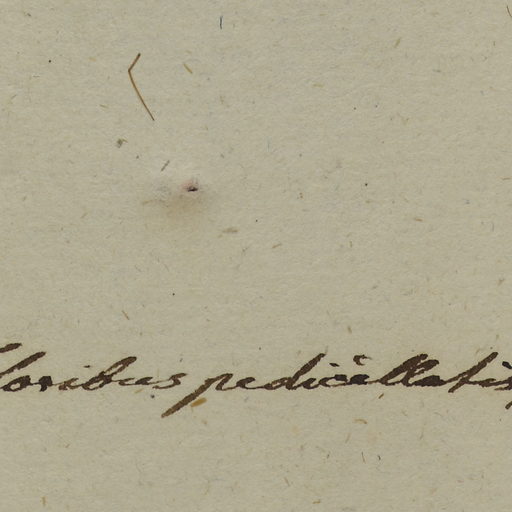 loribus pedicellatis